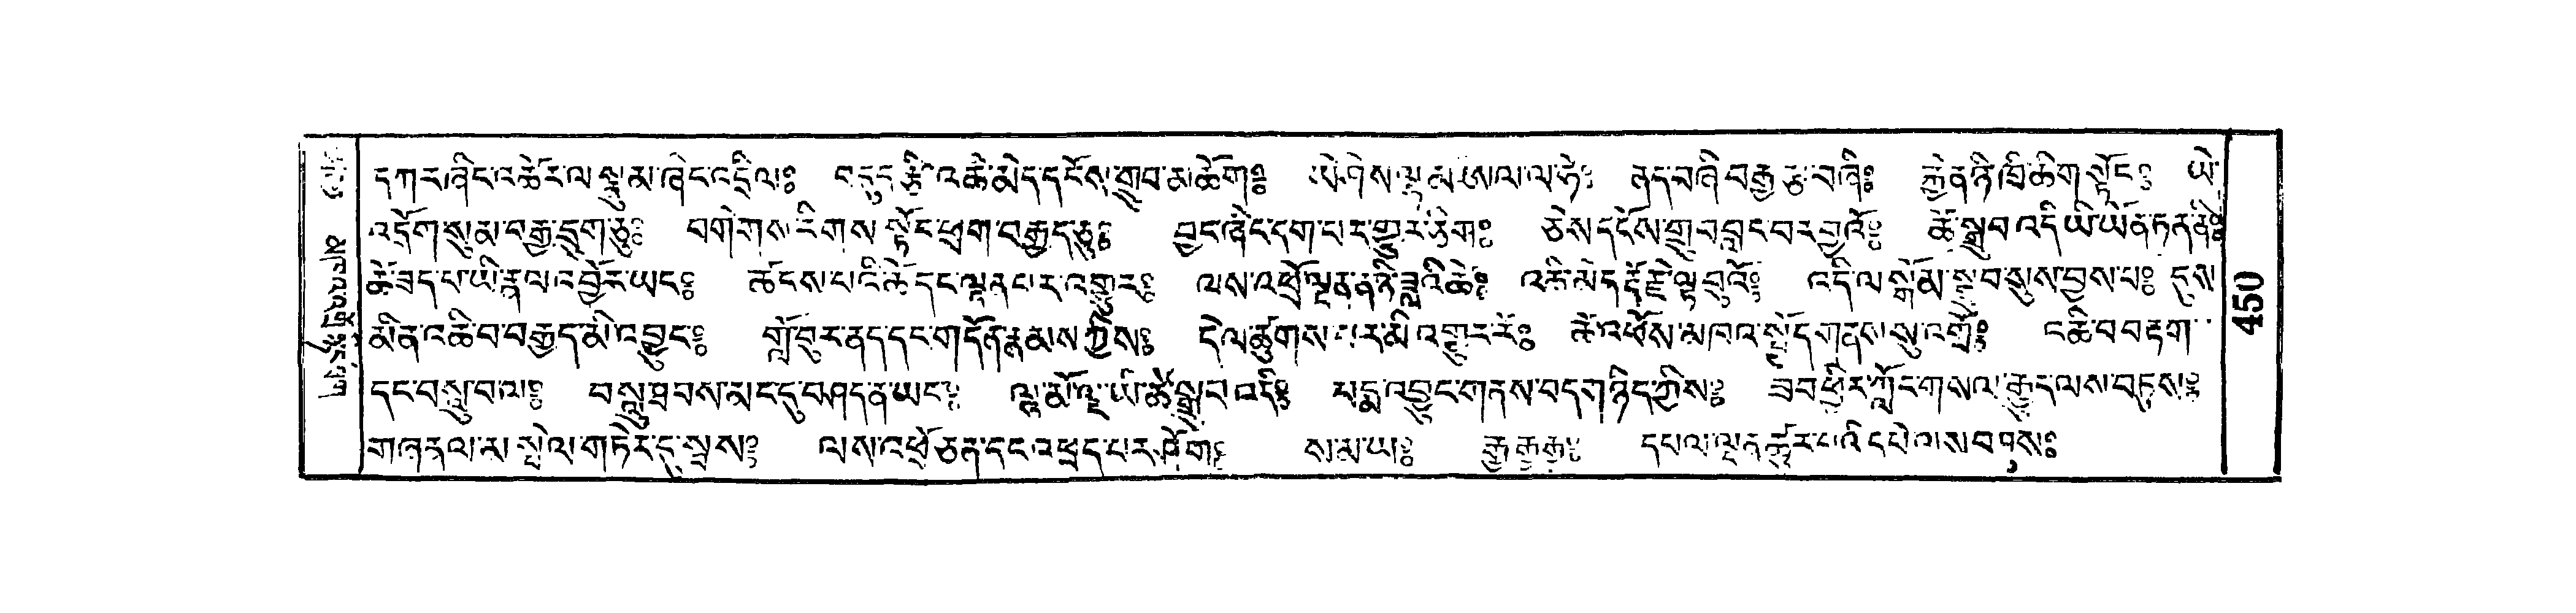 དཀར་ཞིང་འཚེར་ལ་སྣུམ་ཞིང་འདྲིལ༔ བདུད་རྩི་འཆི་མེད་དངོས་གྲུབ་མཆོག༔ ཨེ་ཤེས་ལྡམ་ཨ་ལ་ལ་ཧེ༔ ནད་བཞི་བརྒྱ་རྩ་བཞི༔ རྐྱེན་ཉི་ཁྲི་ཆིག་སྟོང༔ ཡེ་
འདྲོག་སུམ་བརྒྱ་དྲུག་ཅུ༔ བགེགས་རིགས་སྟོང་ཕྲག་བརྒྱད་ཅུ༔ བྱང་ཞིང་དག་པར་གྱུར་ཅིག༔ ཅེས་དངོས་གྲུབ་བླང་བར་བྱའོ༔ ཚེ་སྒྲུབ་འདི་ཡི་ཡོན་ཏན་ནི༔
ཚེ་ཟད་པ་ཡི་རྣལ་འབྱོར་ཡང༔ ཚངས་པའི་ཚེ་དང་ལྡན་པར་འགྱུར༔ ལས་འཕྲོ་ལྡན་ན་ཉི་ཟླའི་ཚེ༔ འཆི་མེད་རྡོ་རྗེ་ལྟ་བུའོ༔ འདི་ལ་སྒོམ་སྒྲུབ་སུས་བྱས་པ༔ དུས་
མིན་འཆི་བ་བརྒྱད་མི་འབྱུང༔ གློ་བུར་ནད་དང་གདོན་རྣམས་ཀྱིས༔ དེ་ལ་ཚུགས་པར་མི་འགྱུར་རོ༔ ཚེ་འཕོས་མཁའ་སྤྱོད་གནས་སུ་འགྲོ༔ འཆི་བ་བརྟག་
དང་བསླུ་བ་ལ༔ བསླུ་ཐབས་མང་དུ་བཤད་ན་ཡང༔ ལྷ་མོ་ལྔ་ཡི་ཚེ་སྒྲུབ་འདི༔ པདྨ་འབྱུང་གནས་བདག་ཉིད་ཀྱིས༔ ཟབ་ཕྱིར་ཀློང་གསལ་རྒྱུད་ལས་བཏུས༔
གཞན་ལ་མ་སྤེལ་གཏེར་དུ་སྦས༔ ལས་འཕྲོ་ཅན་དང་འཕྲད་པར་ཤོག༔ ས་མ་ཡ༔ རྒྱ་རྒྱ་རྒྱ༔ དཔལ་ལྡན་ཚུར་པའི་དཔེ་ལས་བཤུས༔
450